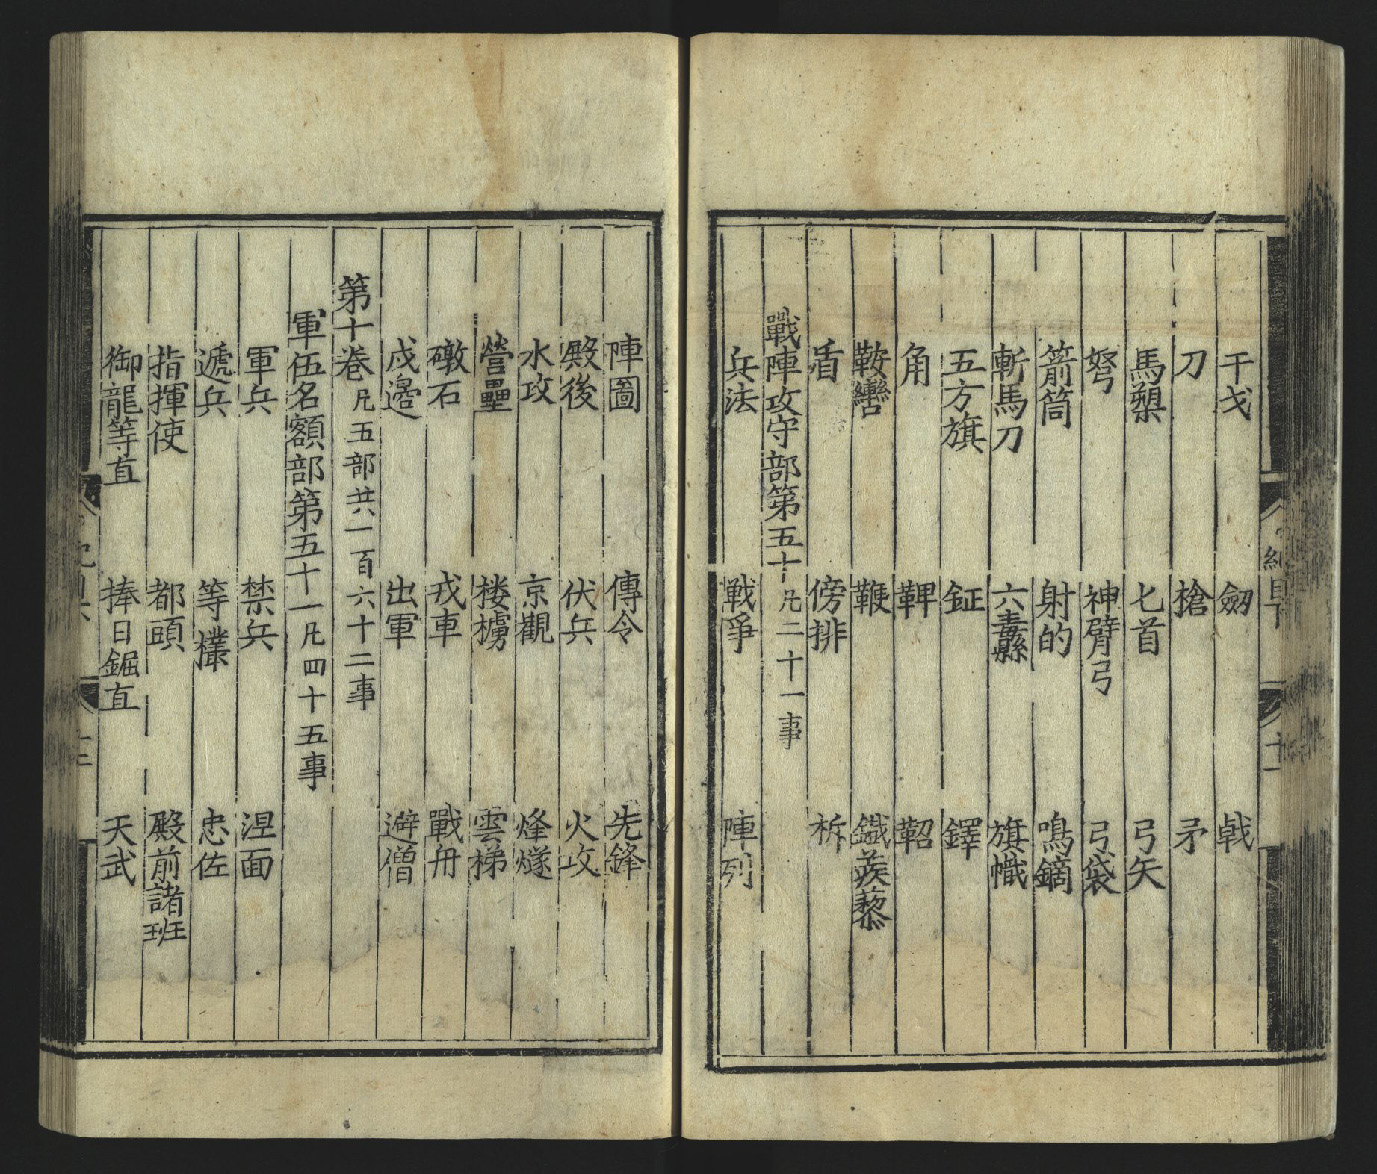 干戈 劒 戟
刀 槍 矛
馬槊 匕首 弓矢
弩 神臂弓 弓袋
箭筒 射的 鳴鏑
斬馬刀 六纛 旗幟
五方旗 鉦 鐸
角 鞞 鞀
鞍轡 鞭 鐵蒺藜
盾 傍排 柝
戰陣攻守部第五十 凡二十一事
兵法 戰爭 陣列
陣圖 傳令 先鋒
殿後 伏兵 火攻
水攻 京觀 烽燧
營壘 楼櫓 雲梯
礮石 戎車 戰舟
戍邊 出軍 避僧
第十卷 凡五部共一百六十二事
軍伍名額部第五十一 凡四十五事
軍兵 禁兵 涅面
遞兵 等㰏 忠佐
指揮使 都頭 殿前諸班
御龍等直 捧日鋸直 天武